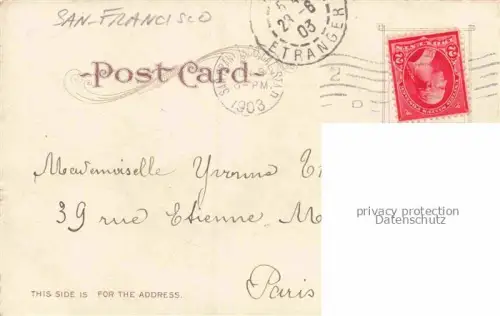 SAN-FRANCISCO
ETRANGER
03
POST CARD
1903
2
Mademoiselle Yvonne
39 rue Etienne
Paris
THIS SIDE IS FOR THE ADDRESS.
privacy protection
Datenschutz